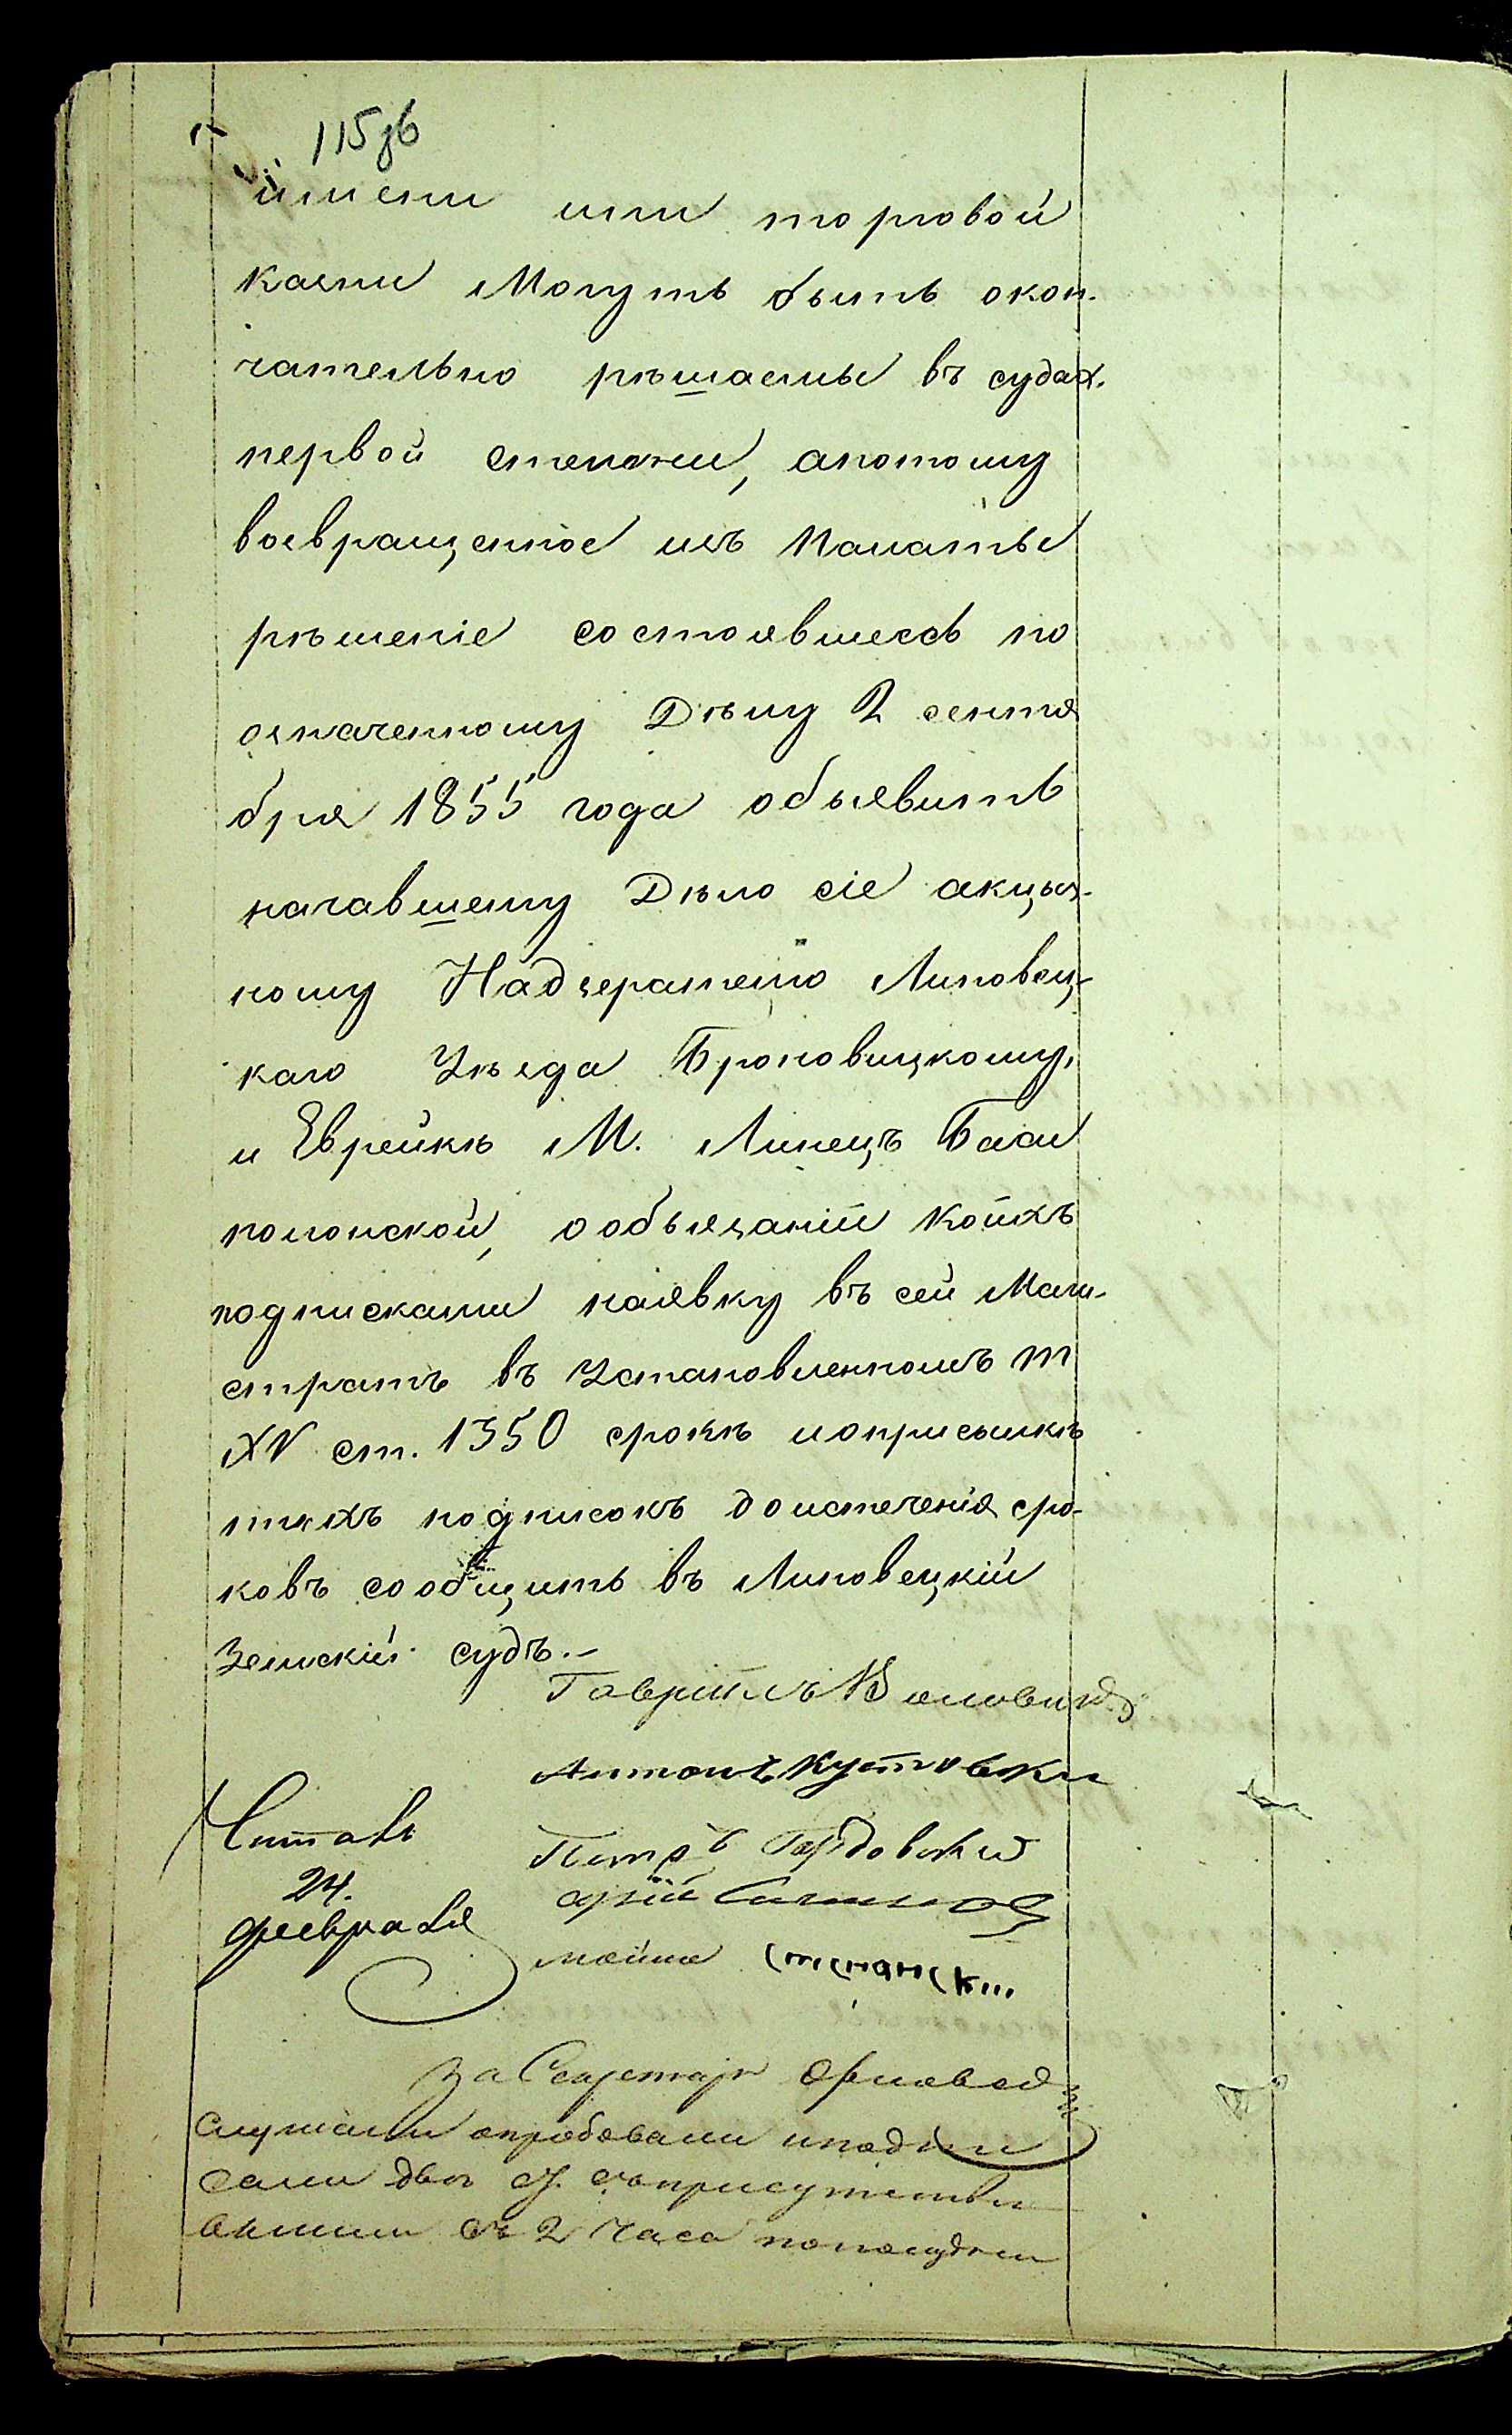 115зв
имени или торговой
казни могутъ быть окон-
чательно рѣшаемы въ судах.
первой степени, апотому
возвращенное изъ Палаты
рѣшеніе состоявшееся по
означенному Дѣлу 2 сентя
бря 1855 года объявить
начавшему Дѣло сіе акциз-
ному Надзерателю Липовец-
каго Уѣзда Броновицкому,
и Еврейкѣ М. Линецъ Баси
полонской, ообязаніи коихъ
подписками наявку въ сей Маги-
стратъ въ установленномъ т
XV ст. 1350 срокѣ иоприсылкѣ
тѣхъ подписокъ доистеченія сро-
ковъ сообщить въ Липовецкій
Земскій судъ.-
Гавріилъ
Антонъ Кутовски
Читалъ
Петръ
24.
февраля
мойше
За Секретаря
слушали опробовали иподпи
сали двѣ съприсутство
вшими въ 2 часа пополудни